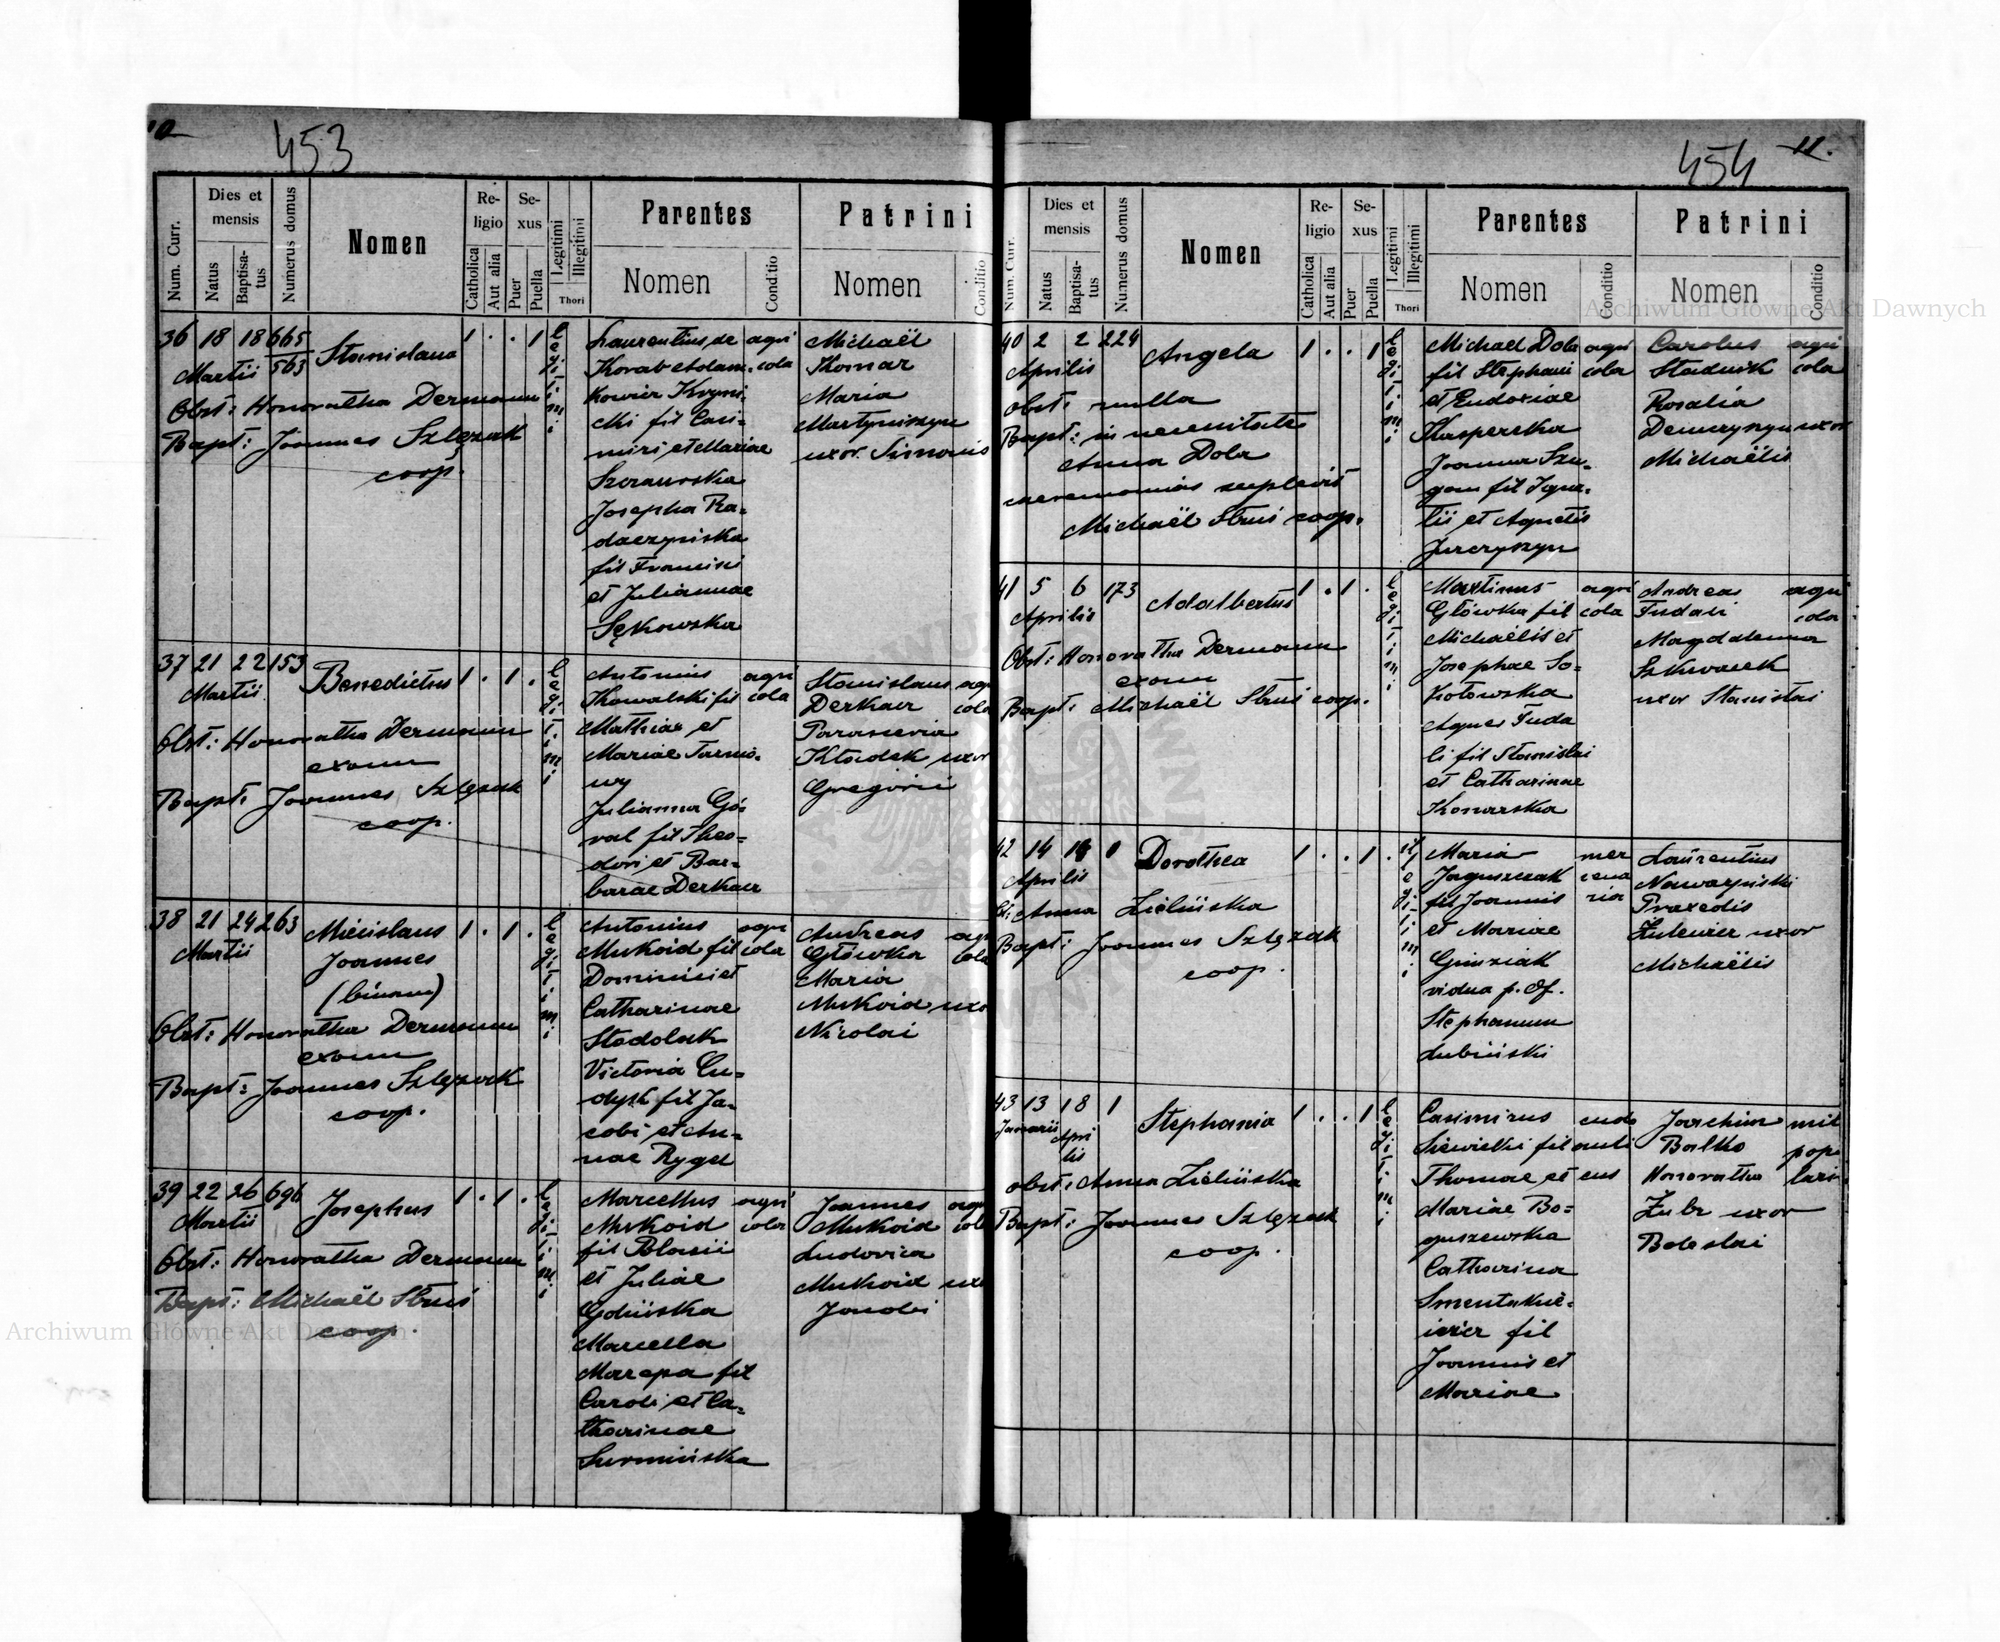 10
453
Num. Curr.
Dies et mensis
Natus
Baptisatus
Numerus domus
Nomen
Religio
Catholica
Aut alia
Sexus
Puer
Puella
Legitimi
Illegitimi
Thori
Parentes
Nomen
Conditio
Patrini
Nomen
Conditio
36 18 18 665
Martii 563
Stanislava
1 . . 1
legitimi
Obst: Honoratha Dermann
Bapt: Joannes Szlęzak
coop.
Laurentius de
Korab Adam-
kowicz
fil Casi-
miri et Mariae
Josepha Ra-
daczyńska
fil Francisci
et Juliannae
Sękowska
agri
cola
Michaël
Komar
Maria
Martyniszyn
uxor Simonis
37 21 22 153
Martii
Benedictus
1 . 1 .
legitimi
Obst: Honoratha Dermann
exam
Bapt: Joannes Szlęzak
coop.
Antonius
Kowalski fil
Mathiae et
Mariae Tarno-
wy
Julianna Gó-
ral fil Theo-
dori et Bar-
barae Derkacz
agri
cola
Stanislaus
Derkacz
Parascevia
Kłodek uxor
Gregorii
agri
cola
38 21 24 263
Martii
Miecislaus
Joannes
(binom)
1 . 1 .
legitimi
Obst: Honoratha Dermann
exam
Bapt: Joannes Szlęzak
coop.
Antonius
Mukoid fil
Dominici et
Catharinae
Stadolnik
Victoria Cu-
dysh fil Ja-
cobi et An-
nae Rygel
agri
cola
Andreas
Główka
Maria
Mukoid uxor
Nicolai
agri
cola
39 22 26 696
Martii
Josephus
1 . 1 .
legitimi
Obst: Honoratha Dermann
Bapt: Michaël Struś
coop.
Marcellus
Mukoid
fil Blasii
et Juliae
Golińska
Marcella
Marcepa fil
Caroli et Ca-
tharinae
Surmińska
agri
cola
Joannes
Mukoid
Ludovica
Mukoid
Jacobi
11.
454
Num. Curr.
Dies et mensis
Natus
Baptisatus
Numerus domus
Nomen
Religio
Catholica
Aut alia
Sexus
Puer
Puella
Legitimi
Illegitimi
Thori
Parentes
Nomen
Conditio
Patrini
Nomen
Conditio
40 2 2 224
Aprilis
Angela
1 . . 1
legitimi
Obst: nulla
Bapt: in necessitate
Anna Dola
caeremonias supplevit
Michaël Struś coop.
Michael Dola
fil Stephani
et Eudoxiae
Kasperska
Joanna Szu-
gan fil Igna-
tii et Agnetis
Jurczyszyn
agri
cola
Carolus
Stadnik
Rosalia
Demczyszyn uxor
Michaëlis
agri
cola
41 5 6 173
Aprilis
Adalbertus
1 . 1 .
legitimi
Obst: Honoratha Dermann
exam
Bapt: Michaël Struś coop.
Martinus
Główka fil
Michaëlis et
Josephae So-
kołowska
Agnes Fuda
li fil Stanislai
et Catharinae
Konarska
agri
cola
Andreas
Fudali
Magdalenna
Szkwarek
uxor Stanislai
agri
cola
42 14 14
Aprilis
Dorothea
1 . . 1 .
illegitimi
Ob: Anna Zielińska
Bapt: Joannes Szlęzak
coop.
Maria
Jaguszczak
fil Joannis
et Mariae
Gruziak
vidua p. def.
Stephanum
Lubiński
mer
cena
ria
Laurentius
Nawarynski
Praxedis
Zulewicz uxor
Michaëlis
43 13 18 1
Januarii Aprilis
Stephania
1 . . 1
legitimi
Obst: Anna Zielińska
Bapt: Joannes Szlęzak
coop.
Casimirus
Siewielki fil
Thomae et
Mariae Bo-
guszewska
Catharina
fil
Joannis et
Mariae
Joachim
Balko
Honoratha
Zubr uxor
Boleslai
Archiwum Główne Akt Dawnych
Archiwum Główne Akt Dawnych